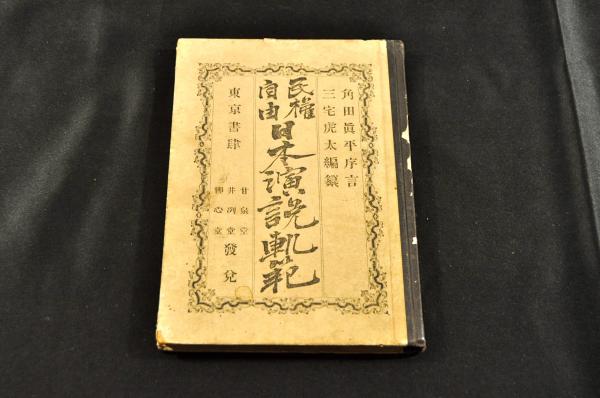 角田眞平序言
三宅虎太編纂
民権
自由
日本演説軌範
東京書肆
甘泉堂
井冽堂
聊心堂
發兌